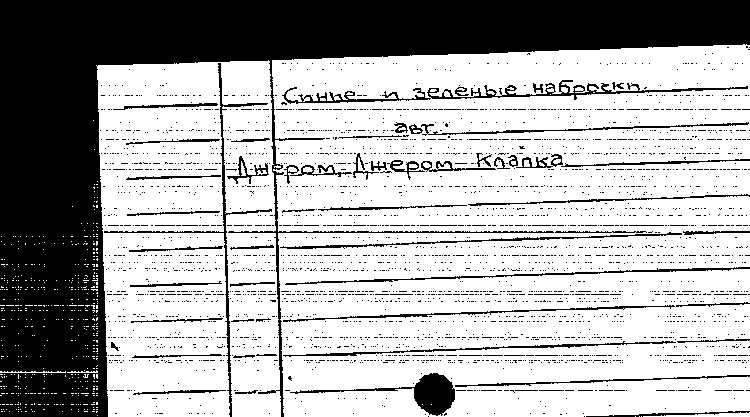 Синие и зеленые наброски
авт.:
Джером, Джером Клапка